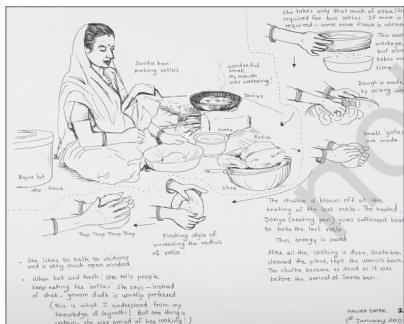 She takes only that much of atta
required for two rotlas. If more is
required - some more flour is
This
wastage,
but also
takes
time.
Dough is made
by
Small
are made
Sarita ben
making rotlas.
wonderful
smell
my mouth
was watering!
Doriya
water
Rotla
shak
Bajra lot
the flour
Thap Thap Thap Thap.
Finishing style of
increasing the radius
of rotla.
The chulha is blown off at the
heating of the last rotla. The heated
Doriya (heating pan) gives sufficient heat
to bake the last rotla.
Thus, energy is saved.
After all the cooking is done, Sarita ben
cleaned the place, kept the utensils back.
The chulha became as dead as it was
before the arrival of Sarita ben.
• She likes to talk to visitors
and is very much open minded
• When hot and fresh, she tells people
keep eating the 'rotlas'. She says - instead
of shak - garam dudh is usually preferred.
(This is what I understood from my
knowledge of Gujrathi! But one thing is
certain, she was proud of her cooking!)
1st January 2010.